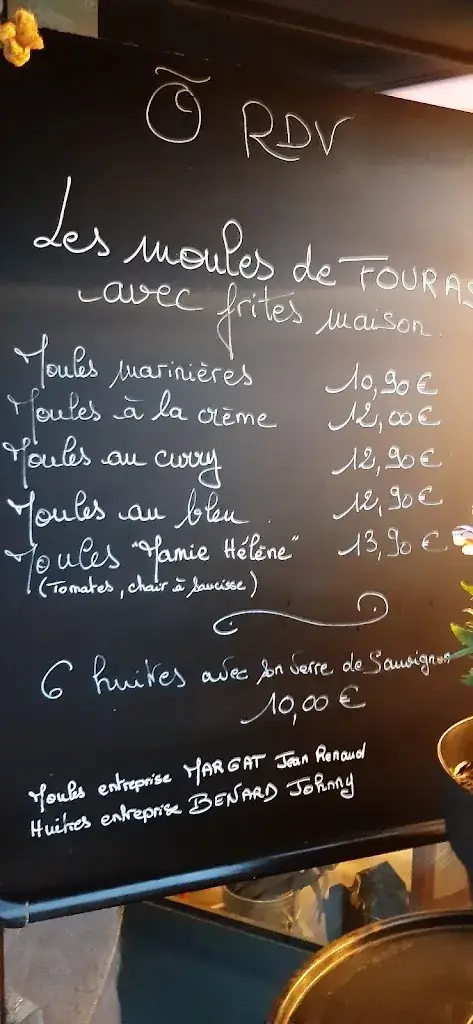 Õ RDV
Les moules de FOURAS
avec frites maison.
Moules marinières 10,90 €
Moules à la crème 12,00 €
Moules au curry 12,90 €
Moules au bleu 12,90 €
Moules "Mamie Hélène" 13,90 €
(Tomates, chair à saucisse)
6 huitres avec son verre de Sauvignon
10,00 €
Moules entreprise MARGAT Jean Renaud
Huitres entreprise BENARD Johnny